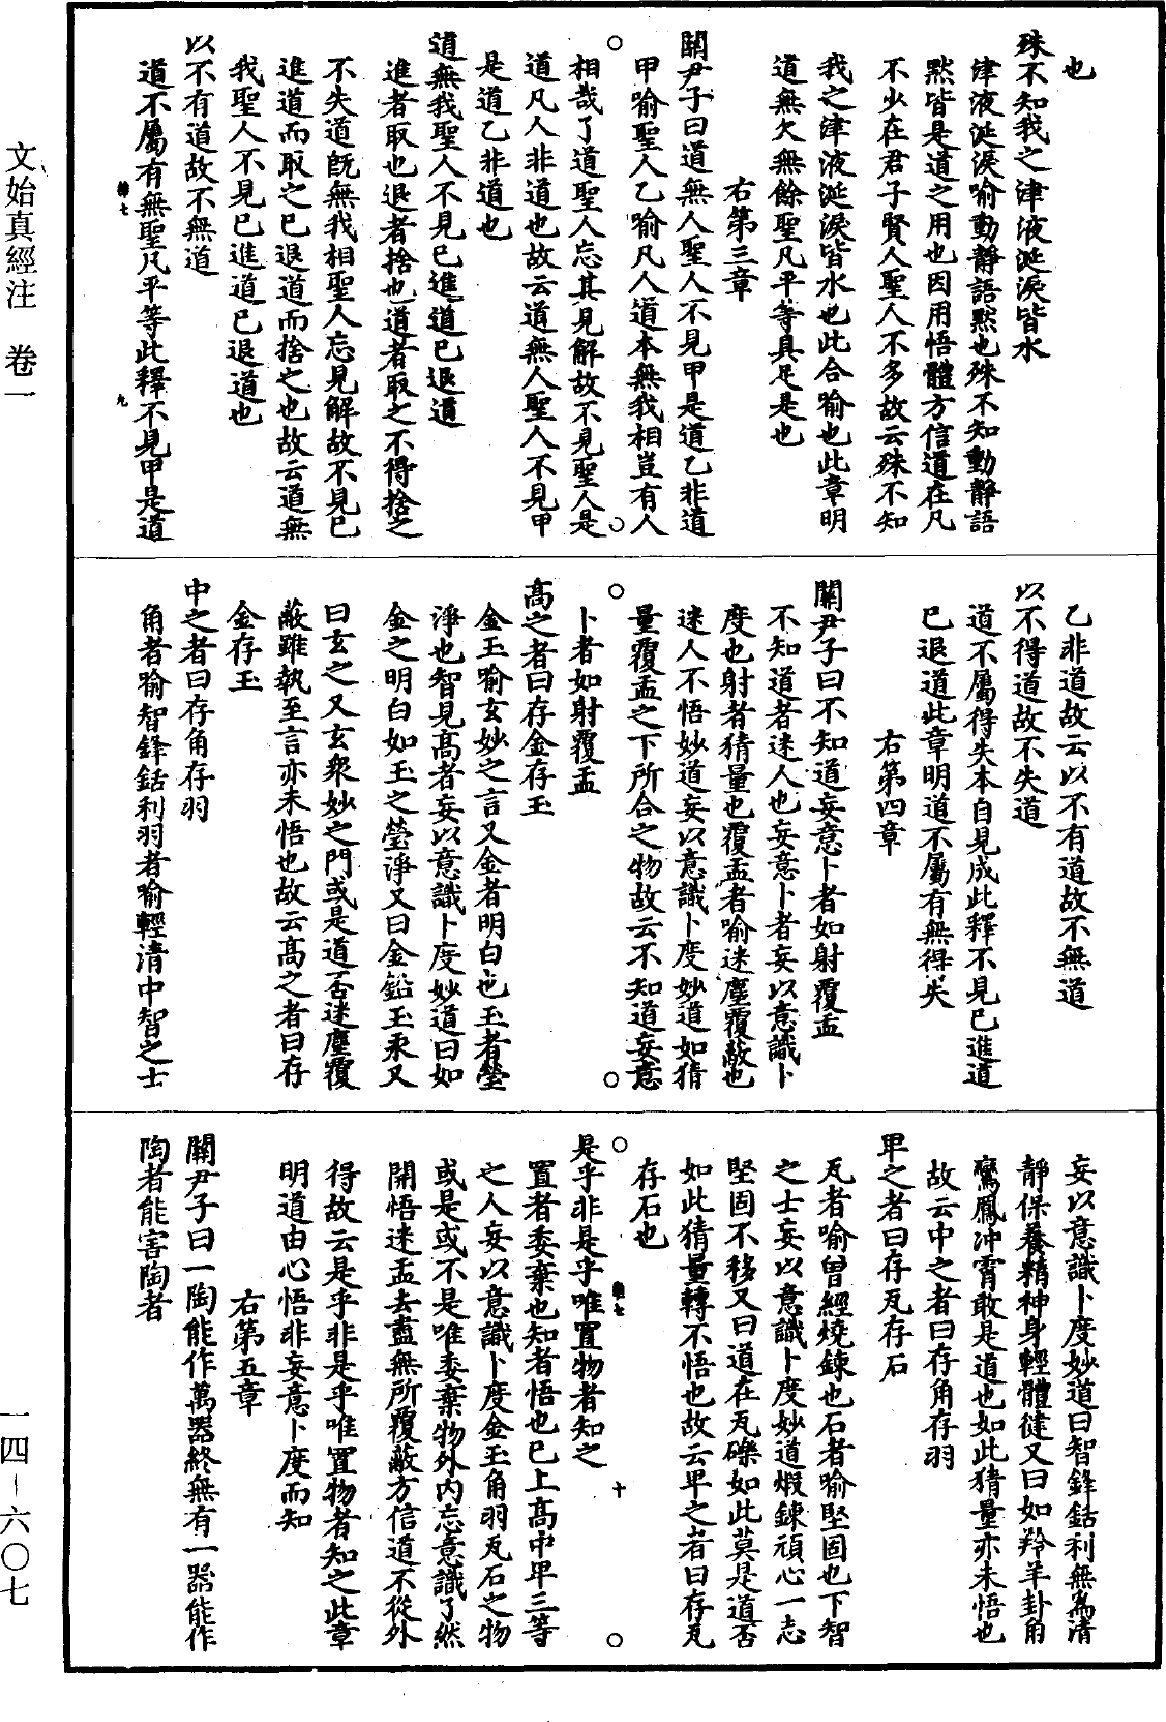 也
殊不知我之津液涎淚皆水
津液涎淚喻動靜語默也殊不知動靜語
默皆是道之用也因用悟體方信道在凡
不少在君子賢人聖人不多故云殊不知
我之津液涎淚皆水也此合喻也此章明
道無欠無餘聖凡平等具足是也
右第三章
關尹子曰道無人聖人不見甲是道乙非道
甲喻聖人乙喻凡人道本無我相豈有人
相哉了道聖人忘其見解故不見聖人是
道凡人非道也故云道無人聖人不見甲
是道乙非道也
道無我聖人不見已進道已退道
進者取也退者捨也道者取之不得捨之
不失道既無我相聖人忘見解故不見已
進道而取之已退道而捨之也故云道無
我聖人不見已進道已退道也
以不有道故不無道
道不屬有無聖凡平等此釋不見甲是道
乙非道故云以不有道故不無道
以不得道故不失道
道不屬得失本自見成此釋不見已進道
已退道此章明道不屬有無得失
右第四章
關尹子曰不知道妄意卜者如射覆盂
不知道者迷人也妄意卜者妄以意識卜
度也射者猜量也覆盂者喻迷塵覆蔽也
迷人不悟妙道妄以意識卜度妙道如猜
量覆盂之下所合之物故云不知道妄意
卜者如射覆盂
高之者曰存金存玉
金玉喻玄妙之言又金者明白也玉者瑩
淨也智見高者妄以意識卜度妙道曰如
金之明白如玉之瑩淨又曰金鉛玉汞又
曰玄之又玄衆妙之門或是道否迷塵覆
蔽雖執至言亦未悟也故云高之者曰存
金存玉
中之者曰存角存羽
角者喻智鋒銛利羽者喻輕清中智之士
妄以意識卜度妙道曰智鋒銛利無爲清
靜保養精神身輕體健又曰如羚羊卦角
鸞鳳沖霄敢是道也如此猜量亦未悟也
故云中之者曰存角存羽
卑之者曰存瓦存石
瓦者喻曾經燒鍊也石者喻堅固也下智
之士妄以意識卜度妙道煆鍊頑心一志
堅固不移又曰道在瓦礫如此莫是道否
如此猜量轉不悟也故云卑之者曰存瓦
存石也
是乎非是乎唯置物者知之
置者委棄也知者悟也已上高中卑三等
之人妄以意識卜度金玉角羽瓦石之物
或是或不是唯委棄物外內忘意識了然
開悟迷盂去盡無所覆蔽方信道不從外
得故云是乎非是乎唯置物者知之此章
明道由心悟非妄意卜度而知
右第五章
關尹子曰一陶能作萬器終無有一器能作
陶者能害陶者
文始真經注　卷一
一四—六〇七
九
十